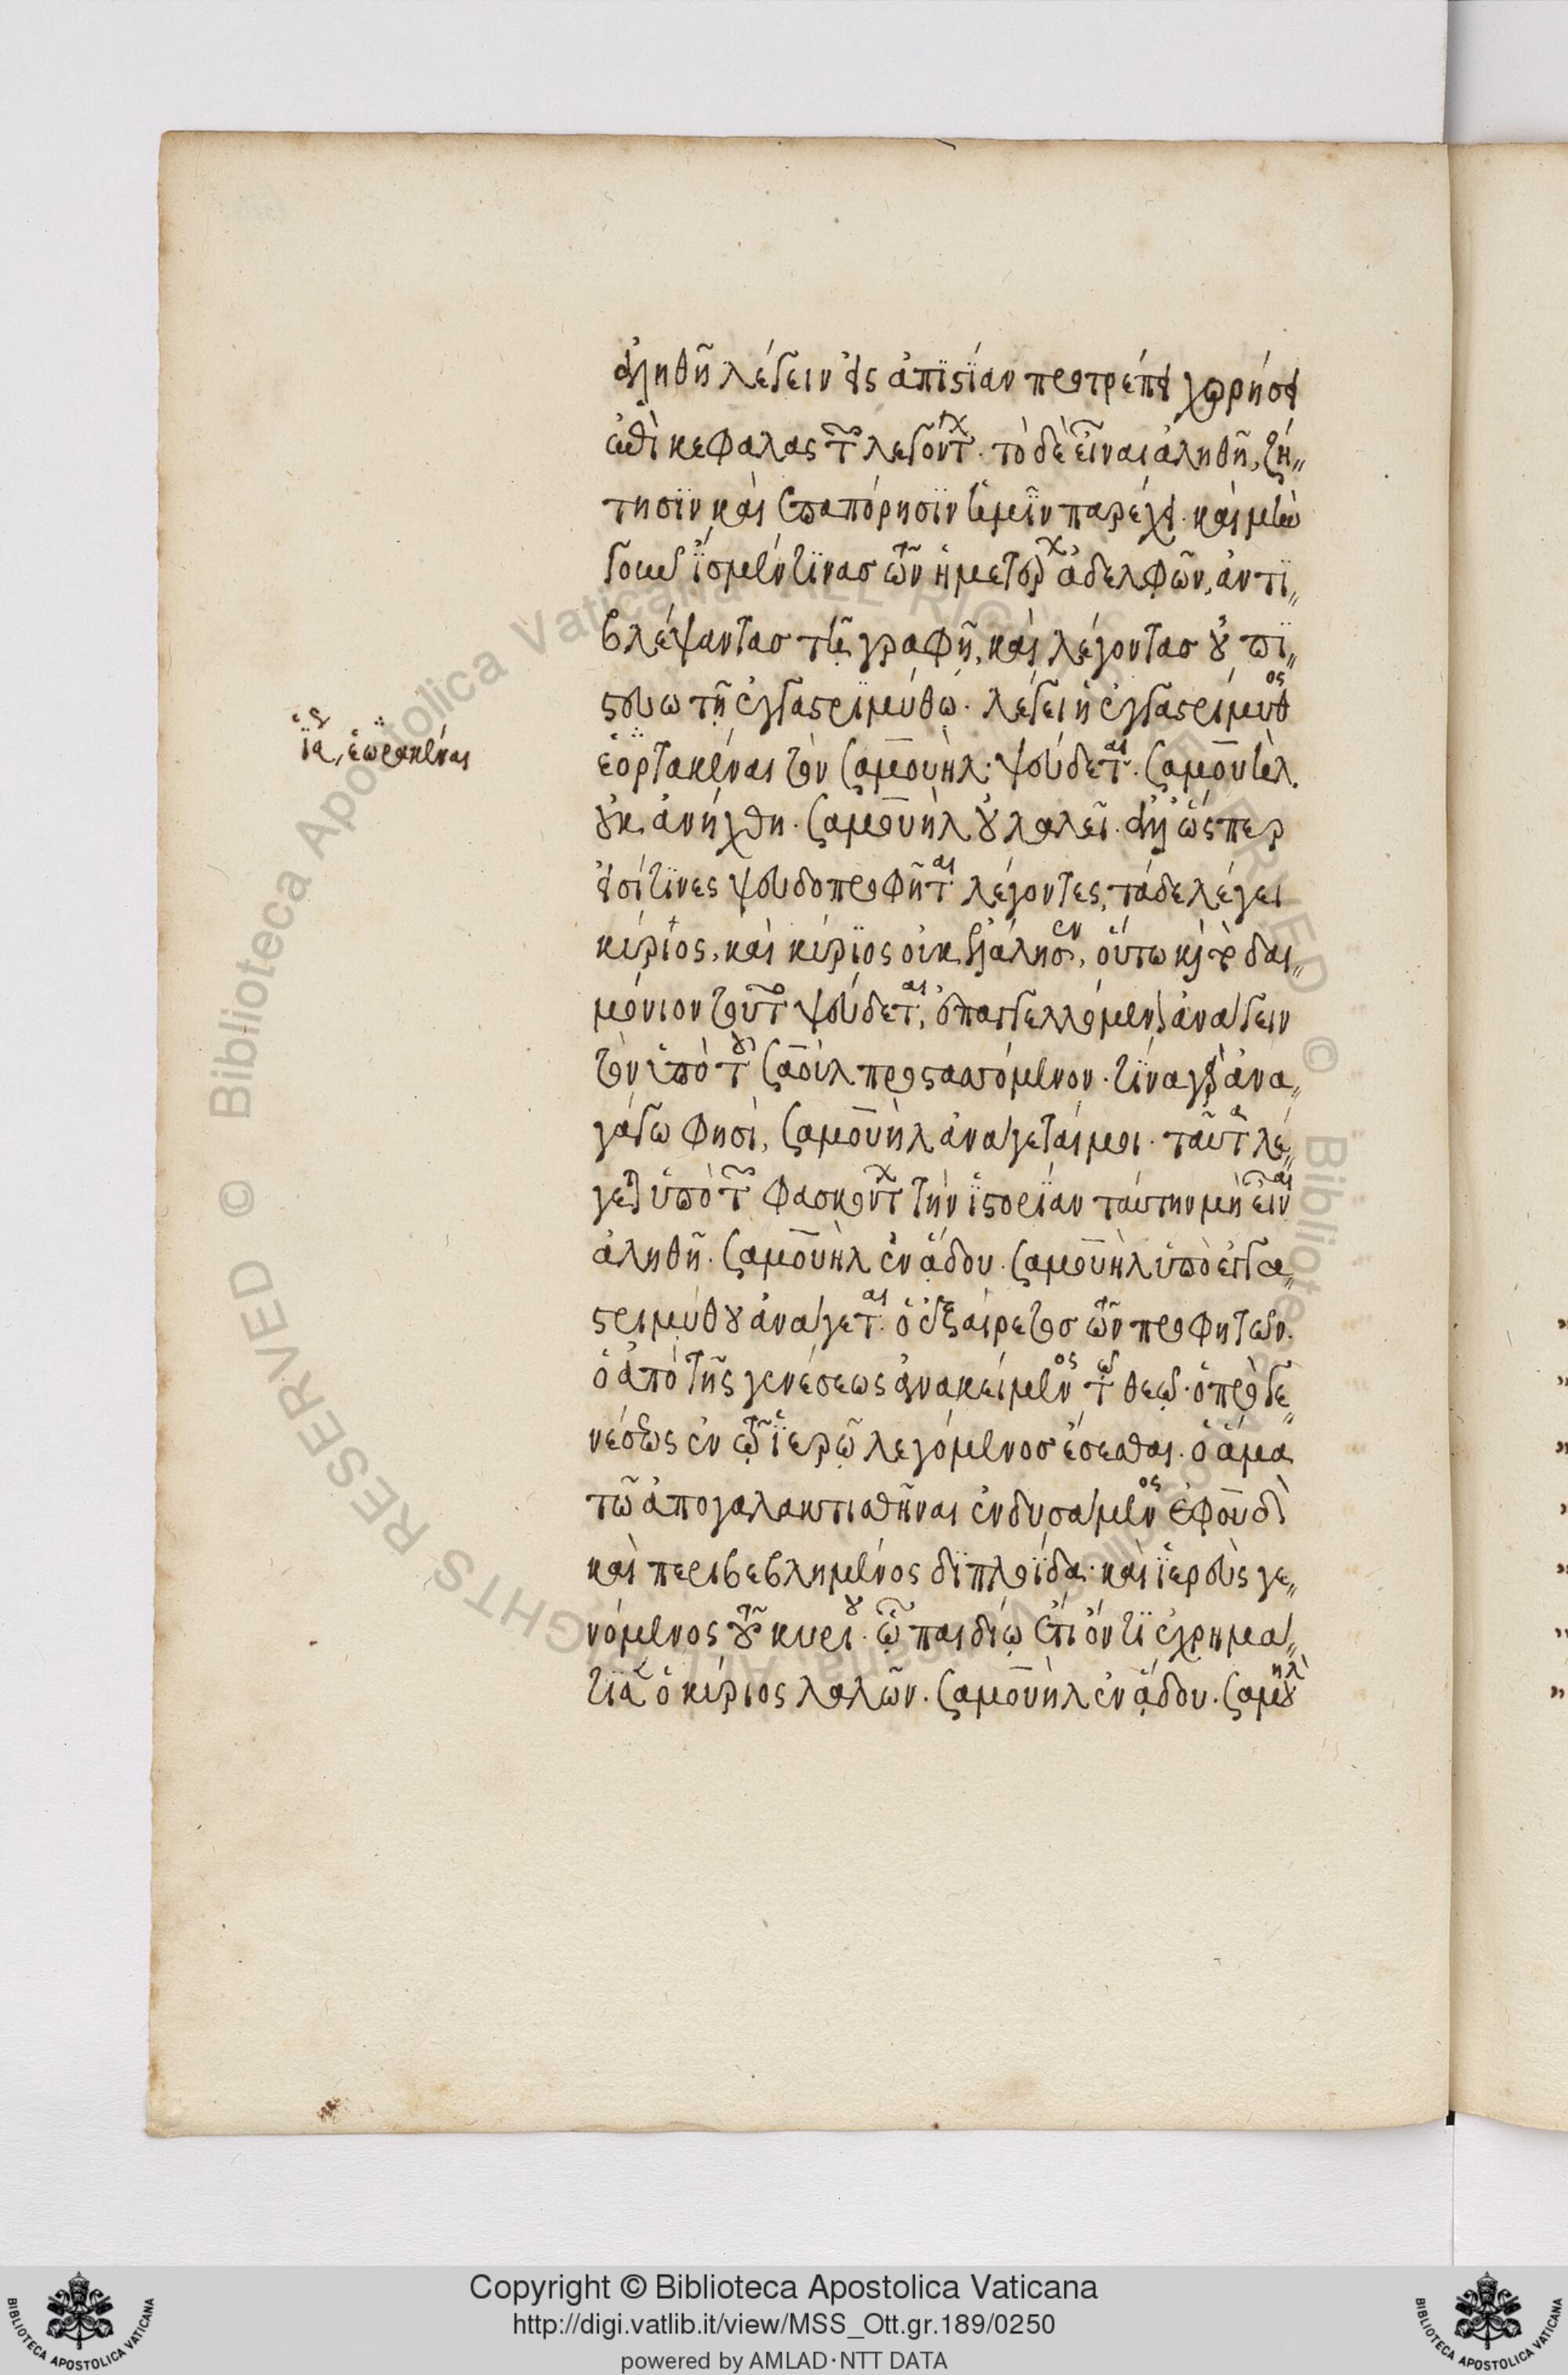 ἀληθῆ λέγειν εἰς ἀπιστίαν προτρέπει χωρήσει
ἐπὶ κεφαλὰς τῶν λεγόντων. τὸ δὲ εἶναι ἀληθῆ, ζή„
τησιν καὶ ἐπαπόρησιν ἡμῖν παρέχει. καὶ μὴν
ἴσμεν τινὰσ τῶν ἡμετέρων ἀδελφῶν, ἀντι„
βλέψαντασ τῇ γραφῇ, καὶ λέγοντασ οὐ πι„
στεύω τῇ ἐγγαστριμύθῳ. λέγει ἡ ἐγγαστρίμυθος
ἑορτακέναι τὸν σαμουὴλ· ψεύδεται. σαμουὴλ
οὐκ ἀνήχθη. σαμουὴλ οὐ λαλεῖ. ἀλλ' ὥσπερ
εἰσί τινες ψευδοπροφῆται λέγοντες, τάδε λέγει
κύριος, καὶ κύριος οὐκ ἐλάλησεν, οὕτω καὶ τὸ δαι„
μόνιον τοῦτο ψεύδεται, ἐπαγγελλόμενον ἀνάγειν
τὸν ὑπὸ τοῦ σαοὺλ προστασσόμενον. τίνα γὰρ ἀνα„
γάγω φησὶ, σαμουὴλ ἀνάγεταί μοι. ταῦτα λέ„
γεται ὑπὸ τῶν φασκόντων τὴν ἱστορίαν ταύτην μὴ εἶναι
ἀληθῆ. σαμουὴλ ἐν ᾅδου. σαμουὴλ ὑπὸ ἐγγα„
στριμύθου ἀνάγεται. ὁ ἐξαίρετοσ τῶν προφητῶν.
ὁ ἀπὸ τῆς γενέσεως ἀνακείμενος τῷ θεῷ. ὁ πρὸ γε„
νέσεως ἐν τῷ ἱερῷ λεγόμενοσ ἔσεσθαι. ὁ ἅμα
τῷ ἀπογαλακτισθῆναι ἐνδυσάμενος ἐφοὺδ
καὶ περιβεβλημένος διπλοΐδα· καὶ ἱερεὺς γε„
νόμενος τοῦ κυρίου. ᾧ παιδίῳ ἔτι ὄντι ἐχρημά„
τιζεν ὁ κύριος λαλῶν. σαμουὴλ ἐν ᾅδου. σαμουὴλ
ἑωρακέναι
Copyright © Biblioteca Apostolica Vaticana
http://digi.vatlib.it/view/MSS_Ott.gr.189/0250
powered by AMLAD·NTT DATA
BIBLIOTECA APOSTOLICA VATICANA
BIBLIOTECA APOSTOLICA VATICANA